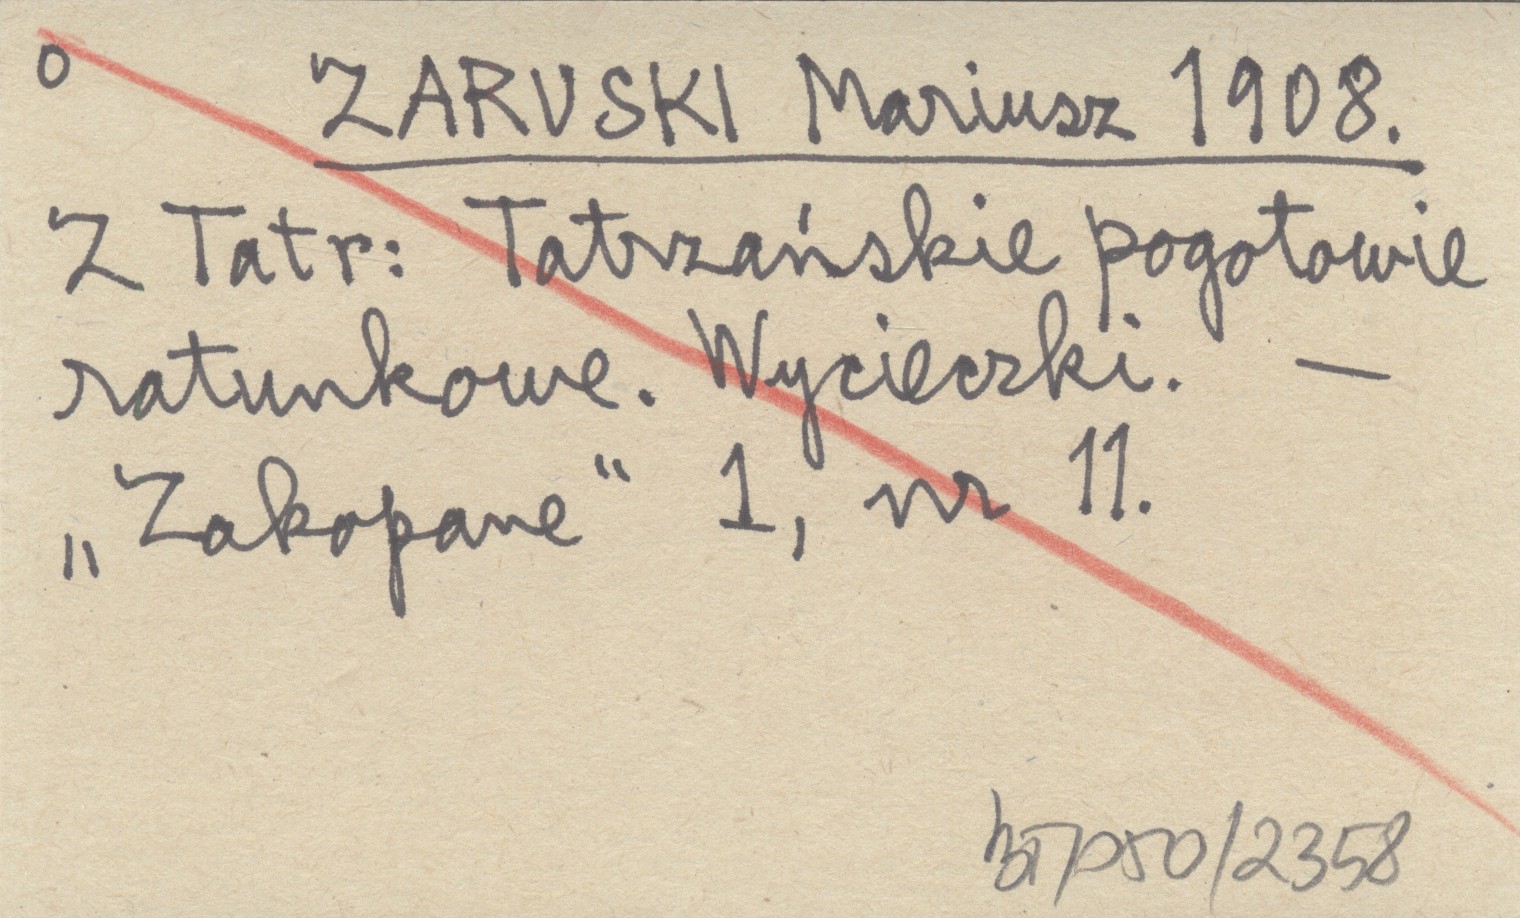 o ZARUSKI Mariusz 1908.
Z Tatr: Tatrzańskie pogotowie
ratunkowe. Wycieczki. —
„Zakopane" 1, nr 11.
/2358